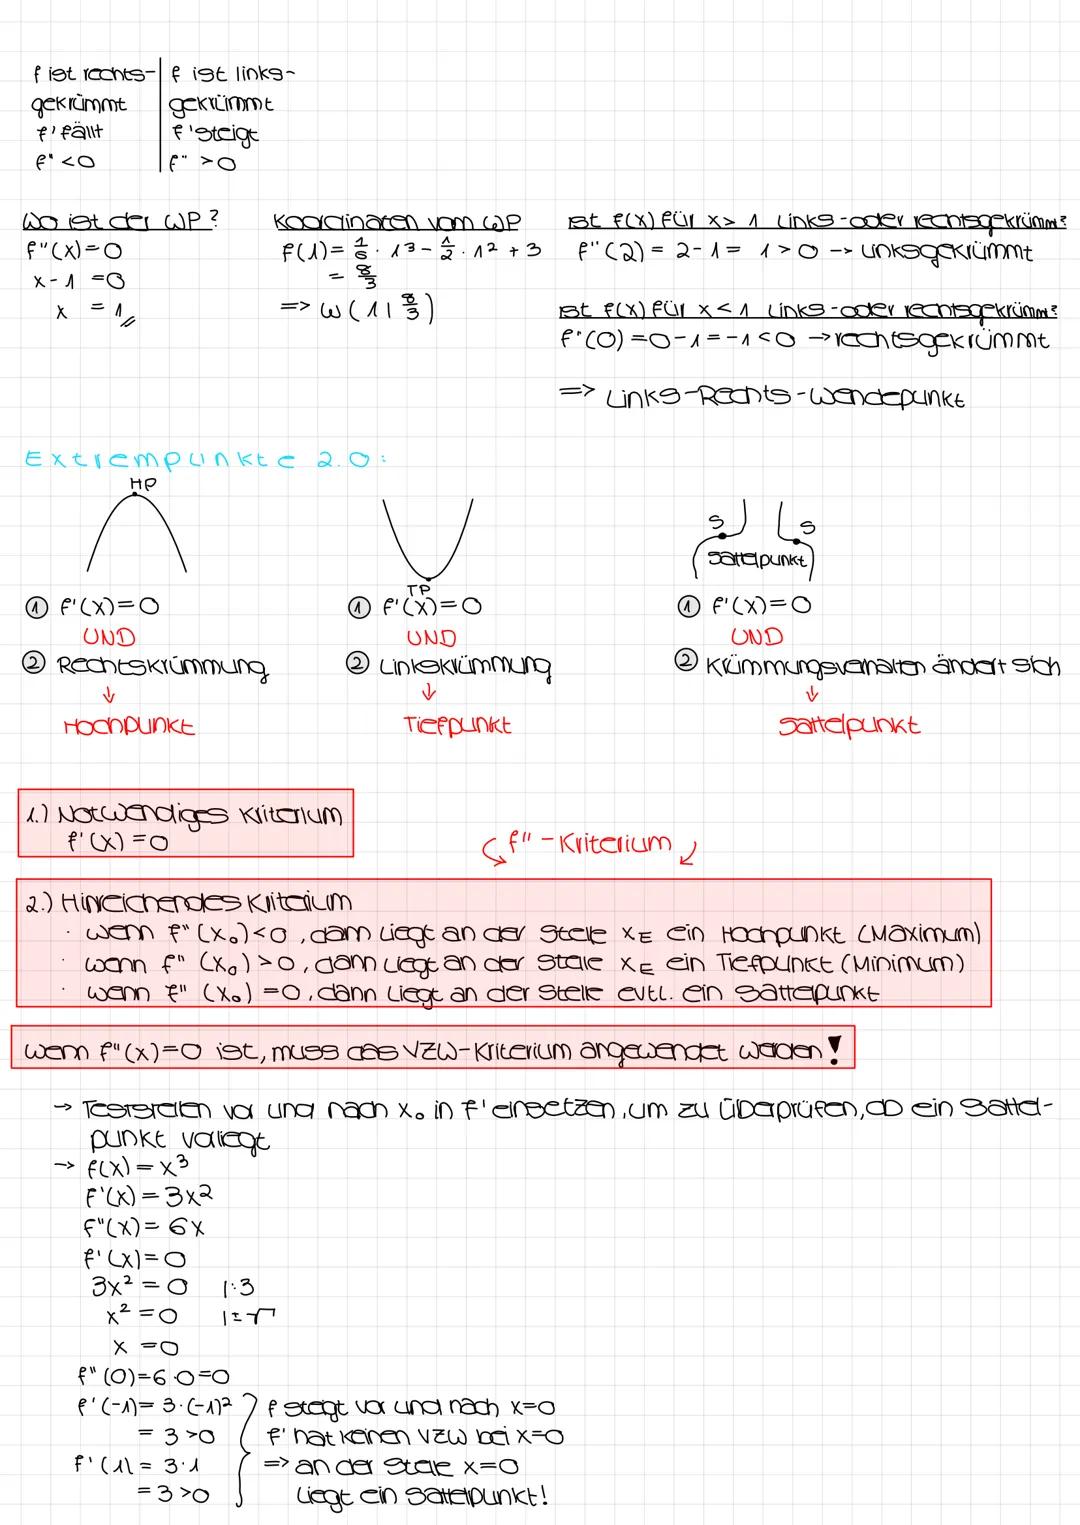 f ist rechts-
gekrümmt
f' fällt
f'' <0
f ist links-
gekrümmt
f' steigt
f'' >0
Wo ist der WP?
f''(x)=0
x-1 =0
x = 1
Koordinaten vom WP
f(1)= 1/6 · 1³ - 1/2 · 1² + 3
= 8/3
=> W(1|8/3)
Ist f(x) für x> 1 Links-oder rechtsgekrümmt?
f''(2) = 2-1 = 1 >0 -> linksgekrümmt
Ist f(x) für x<1 Links-oder rechtsgekrümmt?
f''(0) =0-1=-1<0 -> rechtsgekrümmt
=> Links-Rechts-Wendepunkt
Extrempunkte 2.0:
HP
TP
S S
Sattelpunkt
① f'(x)=0
UND
② Rechtskrümmung
↓
Hochpunkt
① f'(x)=0
UND
② Linkskrümmung
↓
Tiefpunkt
① f'(x)=0
UND
② Krümmungsverhalten ändert sich
↓
Sattelpunkt
1.) Notwendiges Kriterium
f'(x) =0
f'' - Kriterium
2.) Hinreichendes Kriterium
· wenn f''(x₀)<0, dann liegt an der Stelle xE ein Hochpunkt (Maximum)
· wenn f''(x₀)>0, dann liegt an der Stelle xE ein Tiefpunkt (Minimum)
· wenn f''(x₀)=0, dann liegt an der Stelle evtl. ein Sattelpunkt
wenn f''(x)=0 ist, muss das VZW-Kriterium angewendet werden!
-> Teststellen vor und nach x₀ in f' einsetzen, um zu überprüfen, ob ein Sattel-
punkt vorliegt
-> f(x) = x³
f'(x) = 3x²
f''(x) = 6x
f'(x)=0
3x² = 0 |:3
x² = 0 |±√
x =0
f''(0)=6·0=0
f'(-1)= 3·(-1)²
= 3 >0
f'(1) = 3·1
= 3 >0
f steigt vor und nach x=0
f' hat keinen VZW bei x=0
=> an der Stelle x=0
liegt ein Sattelpunkt!